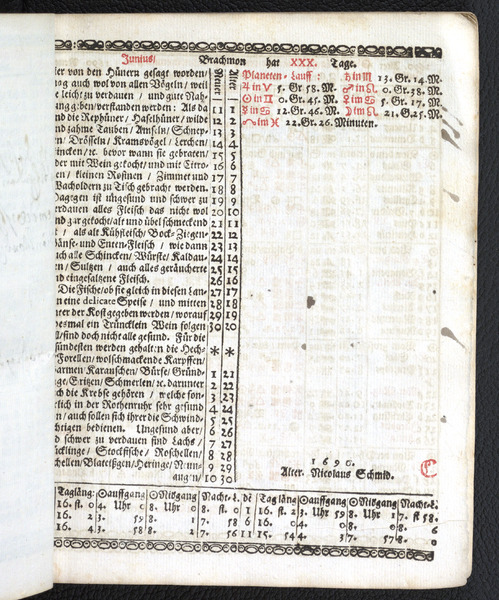 Junius/ Brachmon hat XXX. Tage.
der von den Hünern gesagt worden/
mag auch wol von allen Vögeln/ weil
sie leicht zu verdauen / und gute Nah-
rung geben/verstanden werden: Als da
sind die Rephüner/ Haselhüner/ wilde
und zahme Tauben/ Amseln/ Schnep-
fen/ Drösseln/ Kramsvögel/ Lerchen/
Fincken/ ꝛc. bevor wann sie gebraten/
oder mit Wein gekocht/ und mit Citro-
nen/ kleinen Rosinen / Zimmet und
Wacholdern zu Tisch gebracht werden.
Dagegen ist ungesund und schwer zu
verdauen alles Fleisch das nicht wol
und gar gekocht/alt und übel schmeckend
ist / als alt Kühfleisch/ Bock- Ziegen-
Gänse- und Enten-Fleisch / wie dann
auch alle Schincken/ Würste/ Kaldau-
nen/ Sultzen / auch alles geräucherte
und eingesaltzene Fleisch.
Die Fische/ob sie gleich in diesen Lan-
den eine delicate Speise / und mitten
unter der Kost gegeben werden/ worauf
jedesmal ein Trüncklein Wein folgen
soll/sind doch nicht alle gesund. Für die
gesündesten werden gehalten die Hech-
te/Forellen/ wolschmackende Karpffen/
Karmen Karauschen/ Bürse/ Gründ-
linge/Eritzen/ Schmerlen/ ꝛc. darunter
auch die Krebse gehören / welche son-
derlich in der Rothenruhr sehr gesund
sind/ auch sollen sich ihrer die Schwind-
süchtigen bedienen. Ungesund aber/
und schwer zu verdauen sind Lachs /
Bücklinge/ Stockfische / Roschellen/
Schellen/ Plateißgen/Heringe/ Neun-
augen/
Neuer Alter
11 1
12 2
13 3
14 4
15 5
16 6
17 7
18 8
19 9
20 10
21 11
22 12
23 13
24 14
25 15
26 16
27 17
28 18
29 19
30 20
* *
1 21
2 22
3 23
4 24
5 25
6 26
7 27
8 28
9 29
10 30
Planeten-Lauff: ♄ in ♏ 13. Gr. 14. M.
♃ in ♈ 5. Gr 58. M. ♂ in ♌ 0. Gr. 38. M.
☉ in ♊ 0. Gr. 45. M. ♀ in ♋ 5. Gr. 17. M.
☿ in ♋ 12. Gr. 46. M. ☽ in ♌ 21. G. 25. M.
☊ in ♓ 22. Gr. 26. Minuten.
1690.
Alter. Nicolaus Schmid.
C
Tagläng: ☉auffgang ☉Nirgang Nacht-L. de Tagläng ☉auffgang ☉Nirgang Nacht-L.
16. st. 0 4. Uhr 0 8. Uhr 0 8. st. 0 1 16. st. 2 3. Uhr 59 8. Uhr 1 7. st 58.
16. 2 3. 59 8. 1 7. 58 6 16. 0 4. 0 8. 0 8. 6
16. 4 3. 58 8. 2 7. 56 11 15. 54 4. 3 7. 57 8. 0